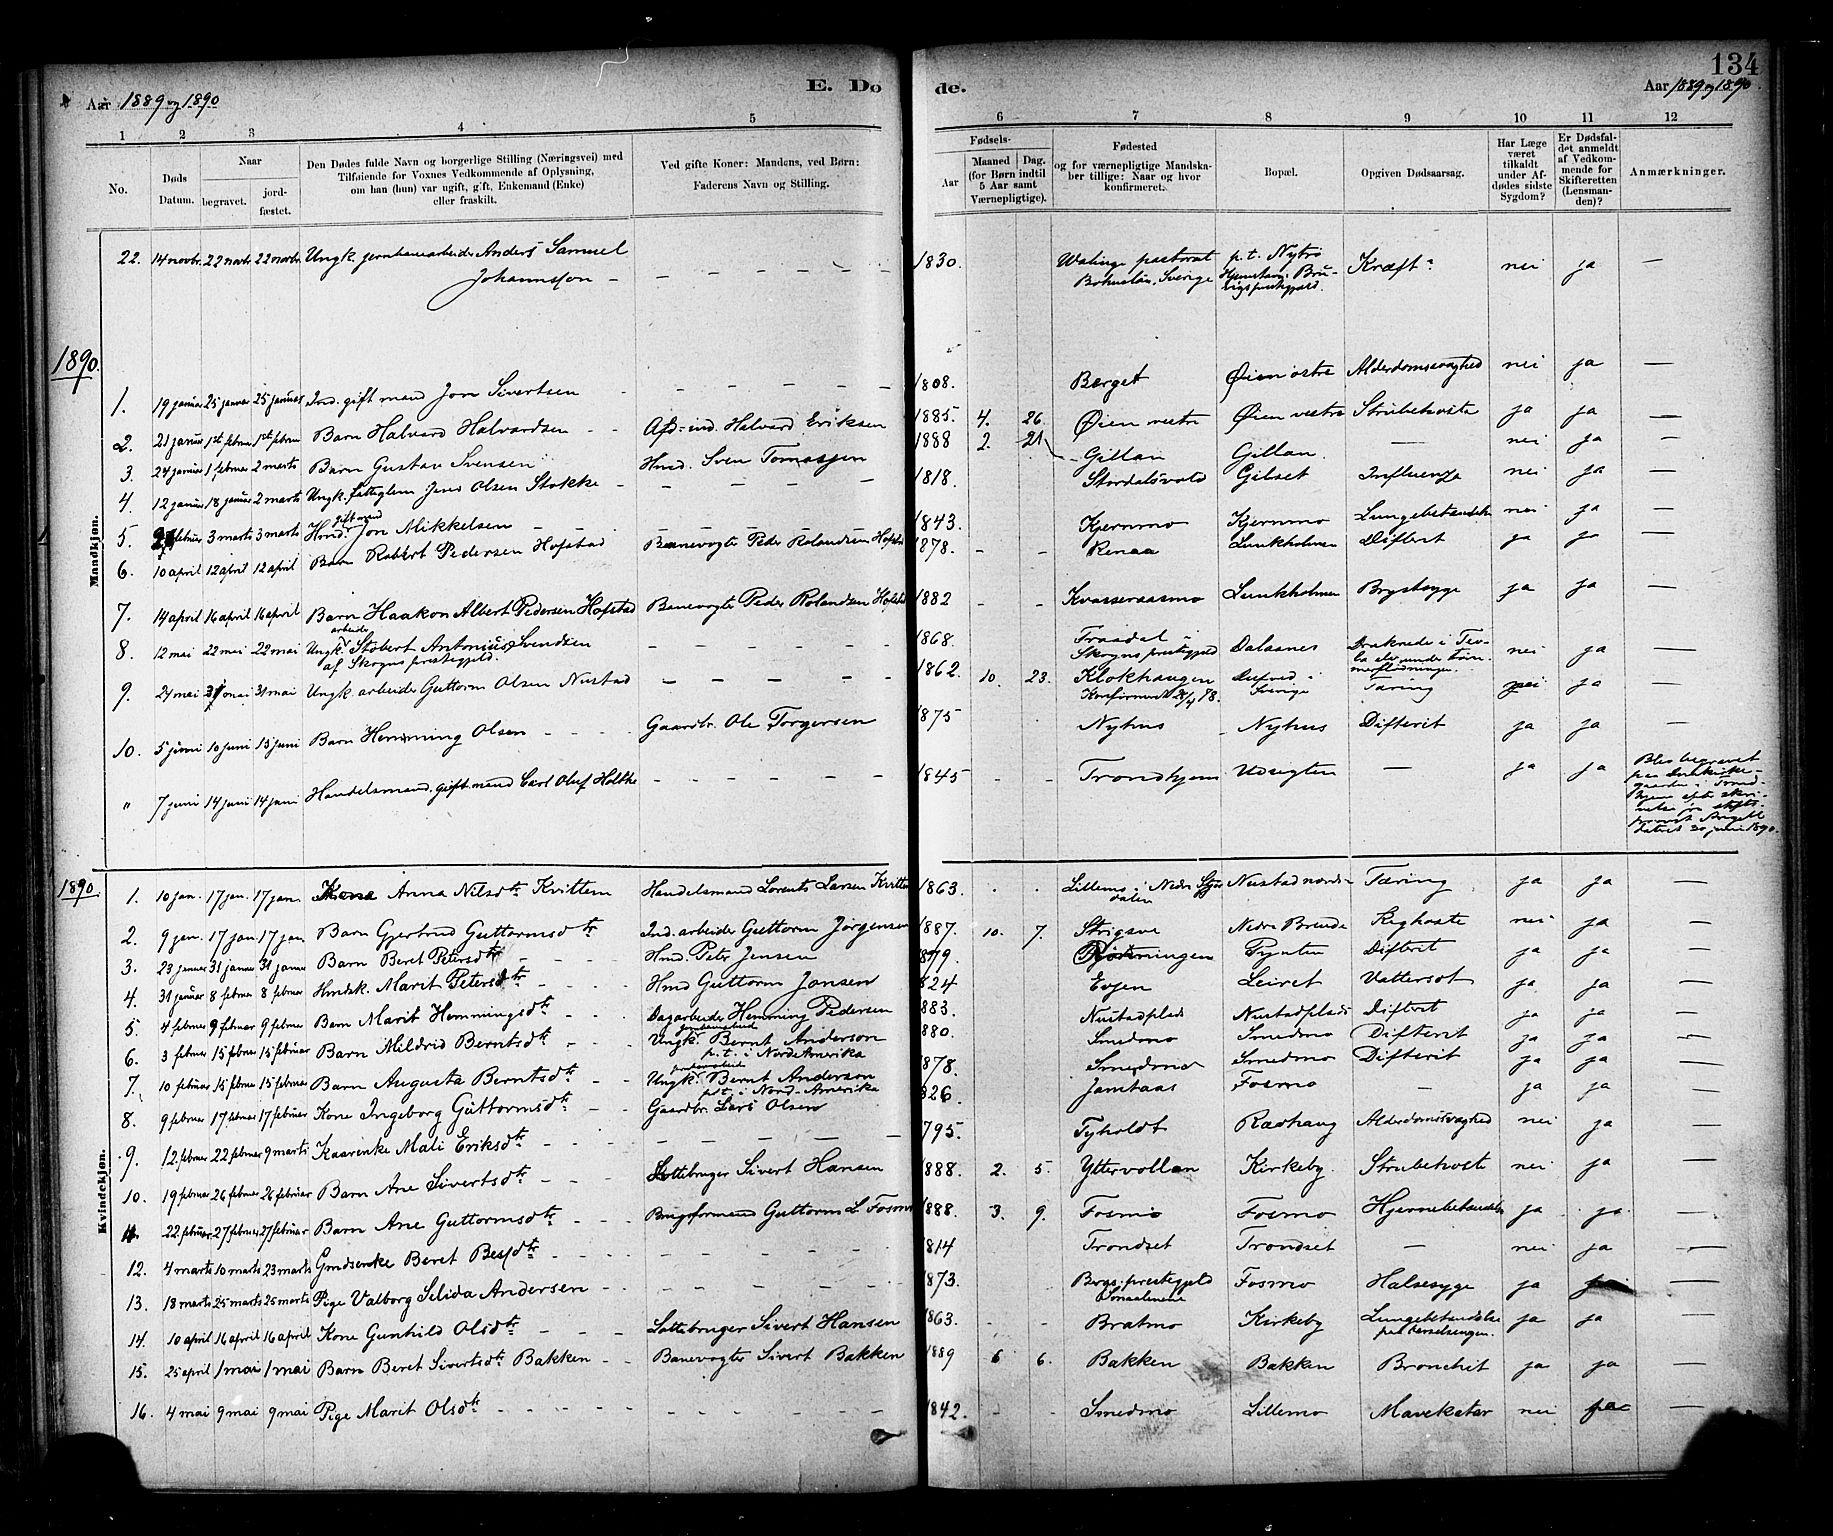 134
Aar 1889 og 1890
E. Dø
de.
Aar 1889 og 1890.
1 2 3 4 5 6 7 8 9 10 11 12
No.
Døds Datum.
Naar
begravet.
jord-fæstet.
Den Dødes fulde Navn og borgerlige Stilling (Næringsvei) med
Tilføiende for Voxnes Vedkommende af Oplysning,
om han (hun) var ugift, gift, Enkemand (Enke)
eller fraskilt.
Ved gifte Koner: Mandens, ved Børn:
Faderens Navn og Stilling.
Fødsels-
Aar
Maaned (for Børn indtil 5 Aar samt Værnepligtige).
Dag.
Fødested
og for værnepligtige Mandska-
ber tillige: Naar og hvor
konfirmeret.
Bopæl.
Opgiven Dødsaarsag.
Har Læge været tilkaldt under Afdødes sidste Sygdom?
Er Dødsfaldet anmeldt af Vedkommende for Skifteretten (Lensmanden)?
Anmærkninger.
Mandkjøn.
22. 14 novbr. 22 novbr. 22 novbr. Ungk. jernbanearbeider Anders Samuel Johannsson – 1830. Walinge pastorat Bohuslän, Sverige p.t. Nytrø Kræft nei ja —
1890.
1. 19 januar 25 januar 25 januar Ind. gift mand Jon Sivertsen – 1808. Berget Øien østre Alderdomssvaghed nei ja —
2. 21 januar 1st februar 1st februar Barn Halvard Halvardsen – Afd. ind. Halvard Eriksen 1885. 4. 26. Øien vestre Øien vestre Strubehoste ja ja —
3. 24 januar 1 februar 2 marts Barn Gustav Svensen Hmd. Sven Tomassen 1888 2. 21 Gillan Gillan. — nei ja —
4. 12 januar 18 januar 2 marts Ungk. fattiglem Jens Olsen Stokke – 1818. Stordalsvold Gilset Influenza nei ja —
5. februar 3 marts 3 marts Hmd. gift mand Jon Mikkelsen – 1843. Kjernmo Kjernmo Lungebetændelse nei ja —
6. 10 april 12 april 12 april Barn Robert Pedersen Hofstad Banevogter Peder Rolandsen Hofstad 1878. – – Renaa Lunkholmen Difterit ja ja —
7. 14 april 16 april 16 april Barn Haakon Albert Pedersen Hofstad Banevogter Peder Rolandsen Hofstad 1882 – – Kvasseraasmo Lunkholmen Brystsyge ja ja —
8. 12 mai 22 mai 22 mai Ungk. arbeider Antonius Svendsen af Skogns prestegjeld. – 1868. Skogns prestegjeld Dalaanes Druknede i nei ja —
9. 24 mai 31 mai 31 mai Ungk. arbeider Guttorm Olsen Nustad – 1862 10. 23. Klokhaugen Konfirmeret 78. Sverige Tæring nei ja —
10. 5 juni 10 juni 15 juni Barn Hemming Olsen – Gaardbr. Ole Torgersen 1875 Nyhus Nyhus Difterit ja ja —
" 7 juni 14 juni 14 juni Handelsmand, gift mand Carl Oluf Holthe – 1845 – – Trondhjem Udsigten — ja ja Blev begravet paa kirkegaarden i Trondhjem efter skrivelse fra stiftsprovst dateret 20 juni 1890.
1890.
Kvindekjøn.
1. 10 jan. 17 jan. 17 jan. Kone Anna Nilsdtr Kvittem Handelsmand Lorents Larsen Kvittem 1863. Lillemo i Nedre Stjørdalen Nustad nordre Tæring ja ja —
2. 9 jan. 17 jan 17 jan Barn Gjertrud Guttormsdtr Ind. arbeider Guttorm Jørgensen 1887. 10. 7. Nedre Breude Kighoste nei ja —
3. 23 januar 31 januar 31 januar Barn Beret Petersdtr – Hmd. Peter Jensen 1879. Tynten Difterit ja ja —
4. 31 januar 8 februar 8 februar Hmdsk. Marit Petersdtr – Hmd Guttorm Jonsen 824 Evjen Leiret Vattersot ja ja —
5. 4 februar 9 februar 9 februar Barn Marit Hemmingsdtr – Dagarbeider Hemming Pedersen 883. Nustadplads Nustadplads Difterit ja ja —
6. 3 februar 15 februar 15 februar Barn Mildrid Berntsdtr – Ungk. Bernt Anderson p.t. i Nordamerika 880. Smedmo Smedmo Difterit ja ja —
7. 10 februar 15 februar 15 februar Barn Augusta Berntsdtr – Ungk. Bernt Anderson p.t. i Nord-Amerika 1878. Smedmo Smedmo Difterit ja ja —
8. 9 februar 17 februar 17 februar Kone Ingeborg Guttormsdtr – Gaardbr. Lars Olsen 826. Jamtaas Fosmo – ja ja —
9. 12. februar 22 februar 9 marts Kaarenke Mali Eriksdtr – 795. Tyholdt Radhaug Alderdomssvaghed nei ja —
10. 19 februar 26 februar 26 februar Barn Ane Sivertsdtr – Lottebruger Sivert Hansen 1888. 2. 5. Yttervollan Kirkeby. Strubehoste nei ja —
11. 22. februar 27 februar 27 februar Barn Ane Guttormsdtr – Brugsformand Guttorm L Fosmo 1888. 3. 9. Fosmo Fosmo Hjernebetændelse ja ja —
12. 4 marts 10 marts 23 marts Gmdsenke Beret – 1814 Trondset Trondset — nei ja —
13. 18 marts 25 marts 25 marts Pige Valborg Selida Andersen – 1873. prestegjeld Smaalenene Fosmo Halsesyge ja —
14. 10 april 16 april 16 april Kone Gunhild Olsdtr – Lottebruger Sivert Hansen 1863. Bratmo Kirkeby Lungebetændelse paa barselsengen. ja ja —
15. 25 april 1 mai 1 mai Barn Beret Sivertsdtr Bakken – Banevogter Sivert Bakken 1889 6 6. Bakken Bakken Bronchit ja ja —
16. 4 mai 9 mai 9 mai Pige Marit Olsdtr – 1842. Smedmo Lillemo Mavekatar nei ja —